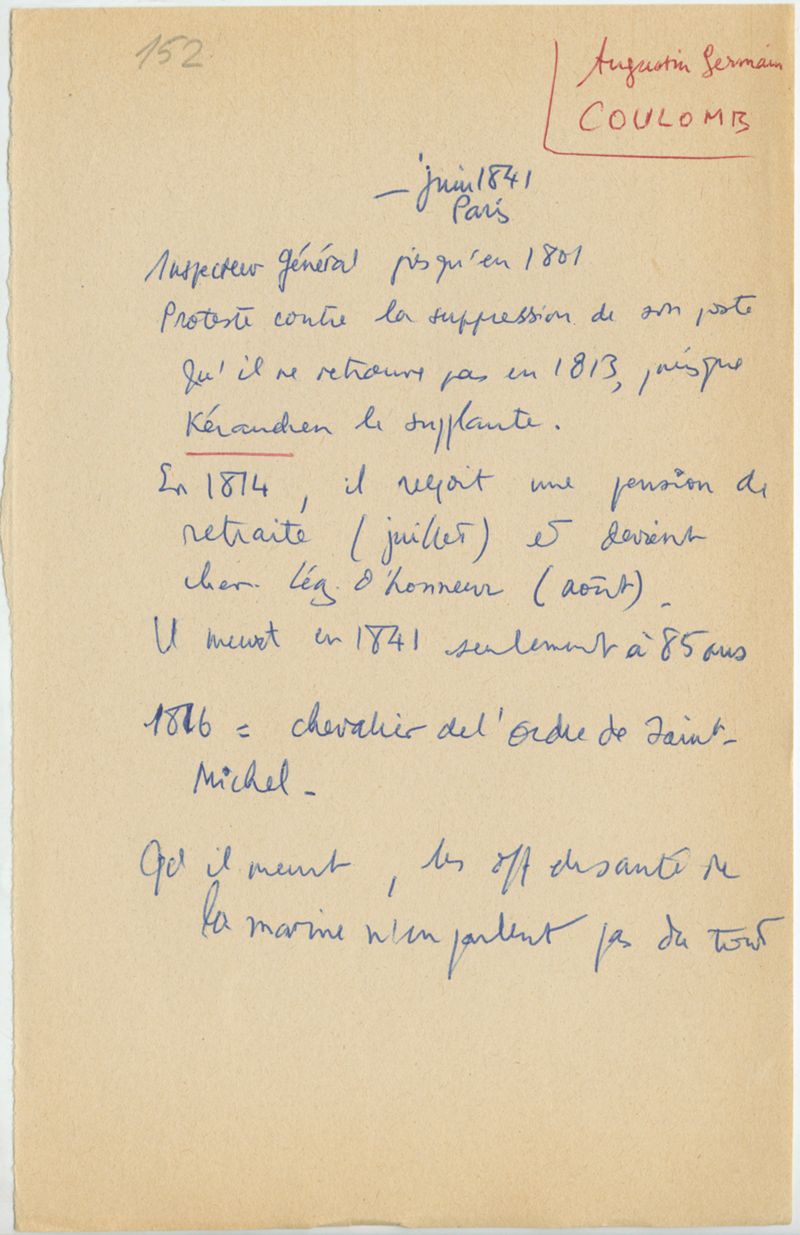 152
Augustin Germain
COULOMB
– juin 1841
Paris
Inspecteur Général jusqu'en 1801
Proteste contre la suppression de son poste
qu'il ne retrouve pas en 1813, puisque
Kéraudren le supplante.
En 1814, il reçoit une pension de
retraite (juillet) et devient
cher. Lég. d'honneur (août).
Il meurt en 1841 seulement à 85 ans
1816 = chevalier de l'Ordre de Saint-
Michel –
Qd il meurt, les off de santé de
la marine n'en parlent pas du tout